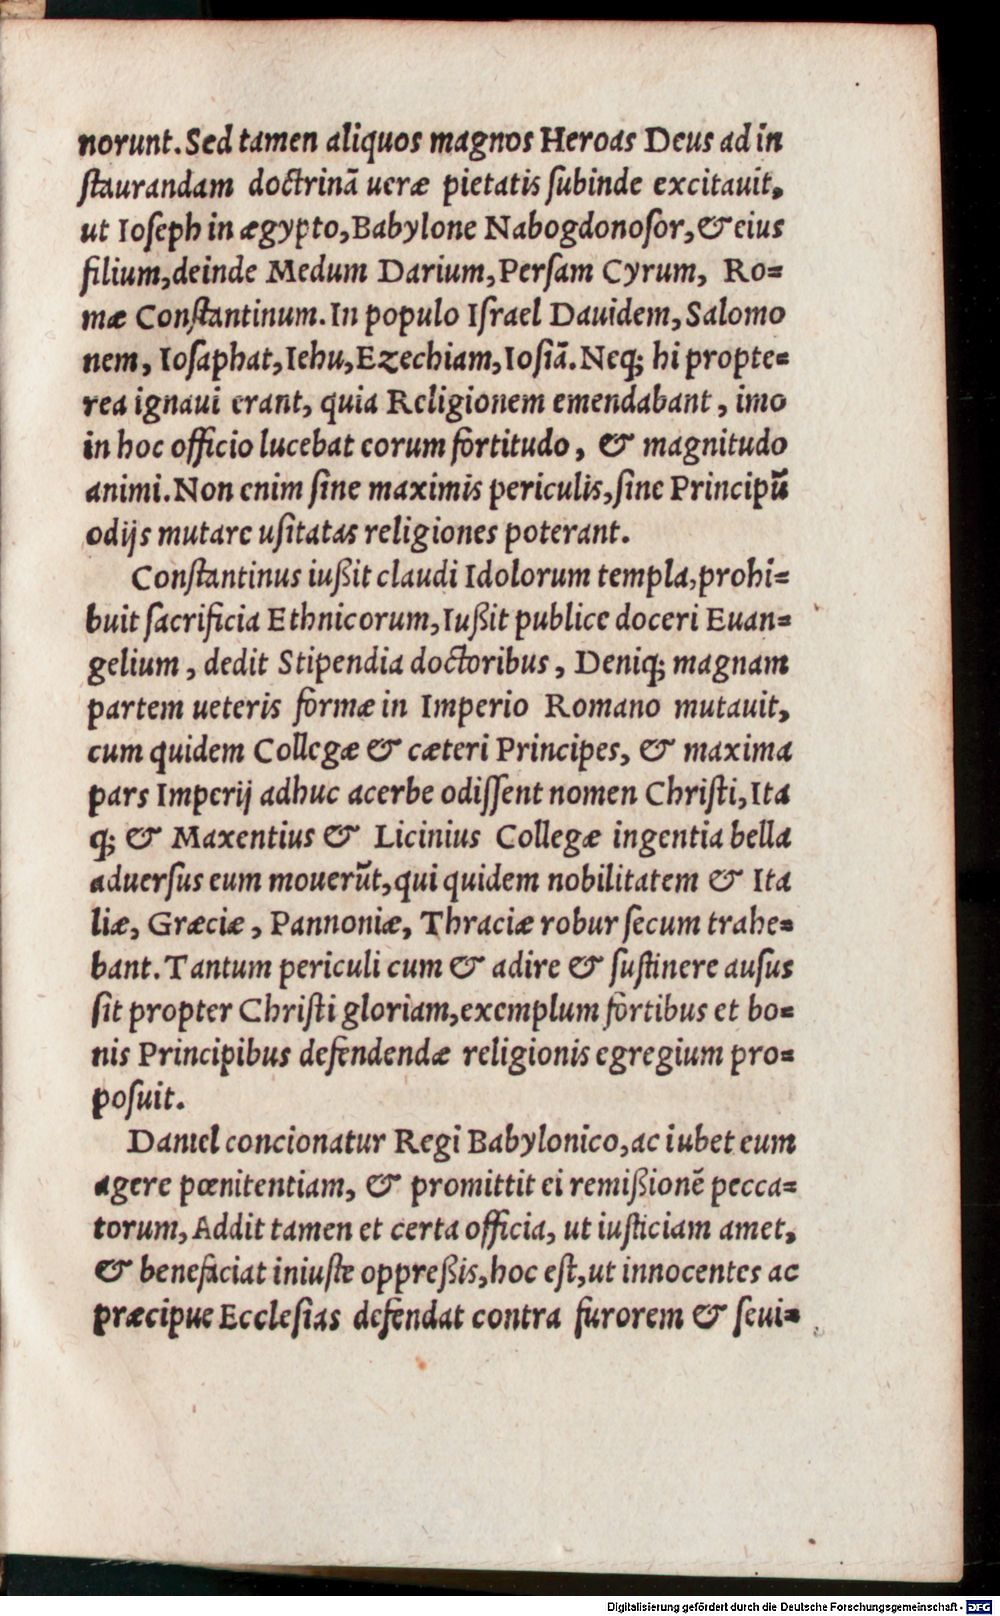 norunt. Sed tamen aliquos magnos Heroas Deus ad in
ſtaurandam doctrinā ueræ pietatis ſubinde excitauit,
ut Ioſeph in ægypto, Babylone Nabogdonoſor, & eius
filium, deinde Medum Darium, Perſam Cyrum, Ro=
mæ Conſtantinum. In populo Iſrael Dauidem, Salomo
nem, Ioſaphat, Iehu, Ezechiam, Ioſiā. Neq; hi propte=
rea ignaui erant, quia Religionem emendabant, imo
in hoc officio lucebat eorum fortitudo, & magnitudo
animi. Non enim ſine maximis periculis, ſine Principū
odijs mutare uſitatas religiones poterant.
Conſtantinus iußit claudi Idolorum templa, prohi=
buit ſacrificia Ethnicorum, Iußit publice doceri Euan=
gelium, dedit Stipendia doctoribus, Deniq; magnam
partem ueteris formæ in Imperio Romano mutauit,
cum quidem Collegæ & cæteri Principes, & maxima
pars Imperij adhuc acerbe odiſſent nomen Chriſti, Ita
q; & Maxentius & Licinius Collegæ ingentia bella
aduerſus eum mouerūt, qui quidem nobilitatem & Ita
liæ, Græciæ, Pannoniæ, Thraciæ robur ſecum trahe=
bant. Tantum periculi cum & adire & ſuſtinere auſus
ſit propter Chriſti gloriam, exemplum fortibus et bo=
nis Principibus defendendæ religionis egregium pro=
poſuit.
Daniel concionatur Regi Babylonico, ac iubet eum
agere pœnitentiam, & promittit ei remißionē pecca=
torum, Addit tamen et certa officia, ut iuſticiam amet,
& benefaciat iniuſte oppreßis, hoc eſt, ut innocentes ac
præcipue Eccleſias defendat contra furorem & ſeui=
Digitalisierung gefördert durch die Deutsche Forschungsgemeinschaft - DFG